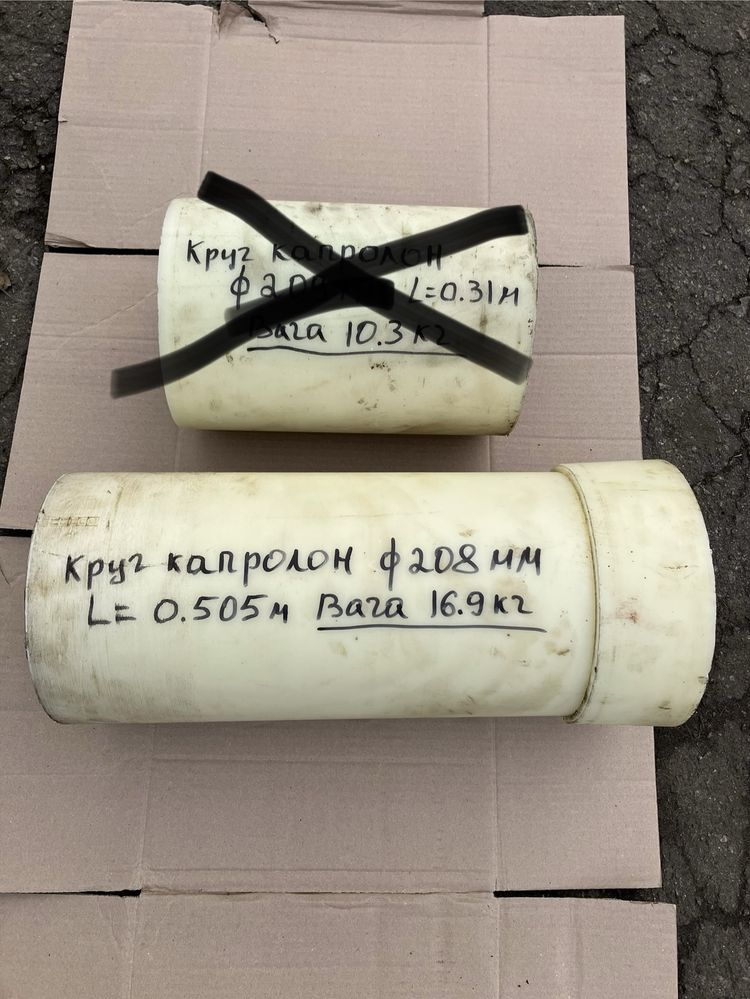 Круг капролон
ф 20 L=0.31м
Вага 10.3 кг
Круг капролон ф 208 мм
L= 0.505м Вага 16.9 кг